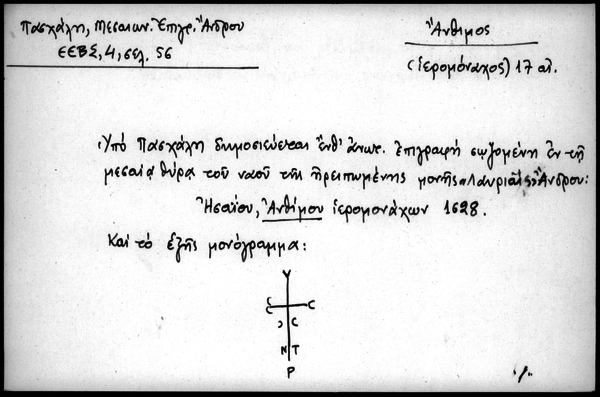 Πασχάλη, Μεσαιων. Ἐπιγρ. Ἄνδρου
ΕΕΒΣ, 4, σελ. 56
Ἄνθιμος
(ἱερομόναχος) 17 αἰ.
Ὑπό Πασχάλη δημοσιεύεται ἔνθ' ἄνωτ. ἐπιγραφή σῳζομένη ἐν τῇ
μεσαίᾳ θύρᾳ τοῦ ναοῦ τῆς ἠρειπωμένης μονῆς Ἄνδρου:
Ἠσαΐου, Ἀνθίμου ἱερομονάχων 1628.
Καί τό ἑξῆς μονόγραμμα:
Υ
C
C
Ν Τ
Ρ